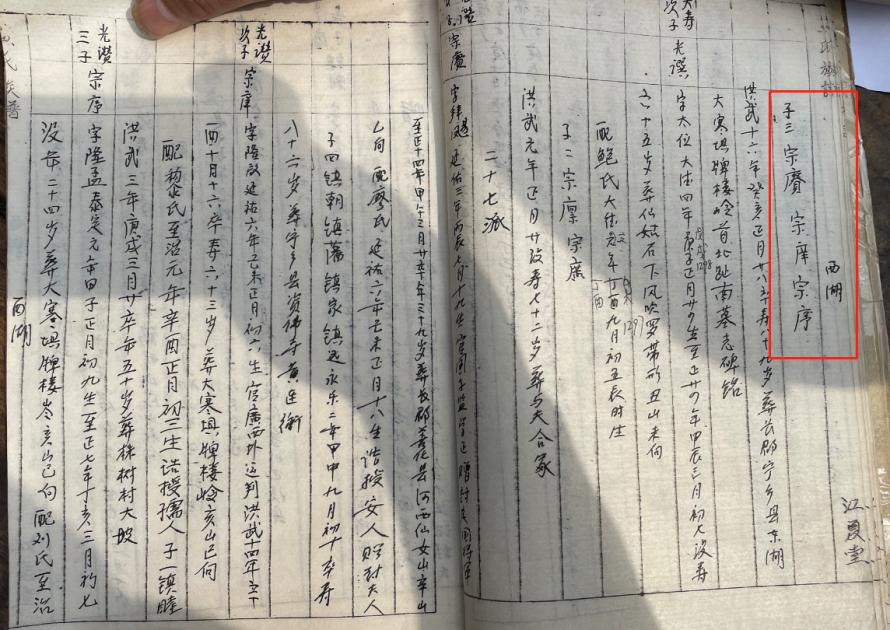 江夏堂
西湖
子三宗赓 宗庠 宗序
洪武十六年癸亥正月廿八卒寿八十九岁葬长郡宁乡县东湖
大寒埧牌楼岭首北趾南墓志碑铭
大寿
次子 光譔 字太位 大德四年庚子正月廿 生至正廿 年甲辰三月初七没寿
1298
六十五岁葬仙姑石下风吹罗带形丑山未向
配鲍氏大德元年丁酉九月初五辰时生
1297
子二宗禀宗广
洪武元年正月廿 没寿七十二岁葬与夫合冢
二十七派
宗赓 字 飏 延祐三年丙辰七月十九生官国子监
至正十四年甲午三月廿 卒年三十九岁葬长郡善化县河西仙女山卒山
乙向 配廖氏 延祐六年己未正月十八生诰授安人 封夫人
子四镇朝 镇藩 镇家 镇远 永乐二年甲申九月初十卒寿
八十六岁 葬宁乡县资福寺黄连冲
光赞
次子 宗庠 字隆啟延祐六年己未正月初六生官广西外运判洪武十四年辛
酉十月十六卒寿六十三岁 葬大寒埧牌楼岭亥山巳向
配杨氏至治元年辛酉正月初三生诰授孺人 子一镇睦
洪武三年庚戌三月廿 卒年五十岁葬株树村大坡
光赞
三子 宗序 字隆孟泰定元年甲子正月初九生至正七年丁亥三月初七
没年二十四岁葬大寒埧牌楼岭亥山巳向 配刘氏至治
西湖
氏族谱